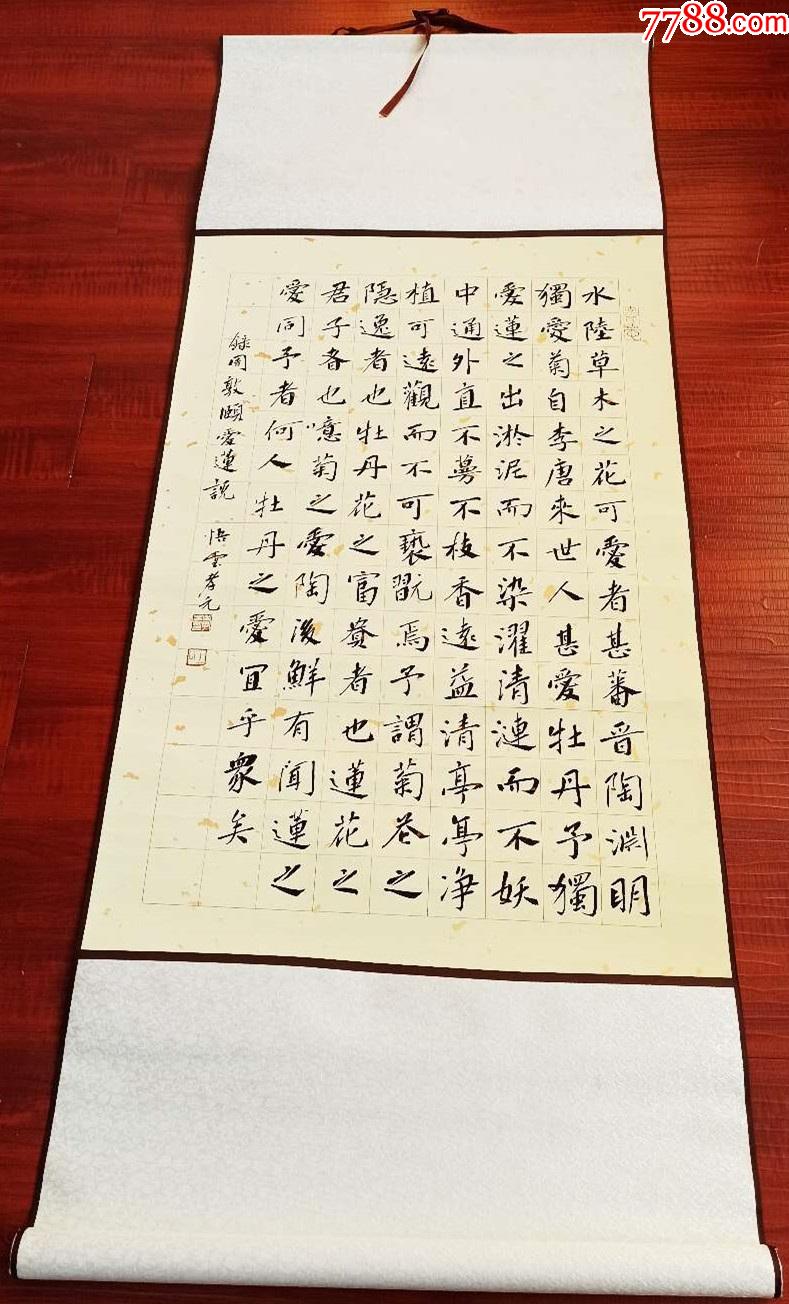 7788.com
水陸草木之花可愛者甚蕃晋陶淵明
獨愛菊自李唐來世人甚愛牡丹予獨
愛蓮之出淤泥而不染濯清漣而不妖
中通外直不蔓不枝香遠益清亭亭净
植可遠觀而不可褻翫焉予謂菊花之
隱逸者也牡丹花之富貴者也蓮花之
君子者也噫菊之愛陶後鮮有聞蓮之
愛同予者何人牡丹之愛宜乎衆矣
録周敦頤愛蓮説 悟雲孝元